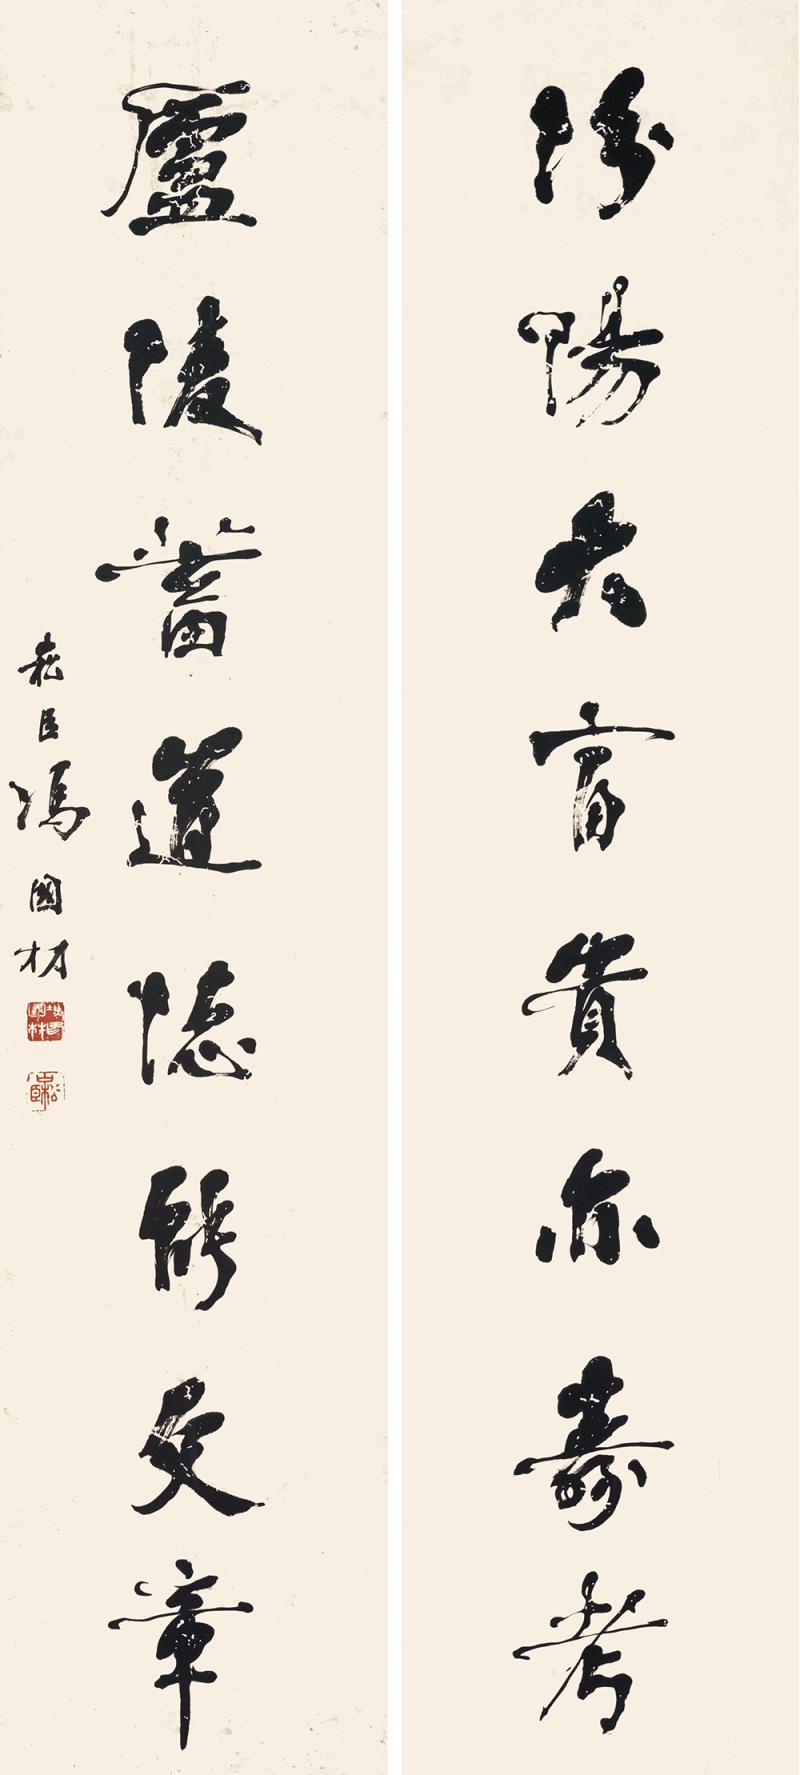 汾陽大富貴亦壽考
廬陵蓄道德能文章
菘臣馮國材